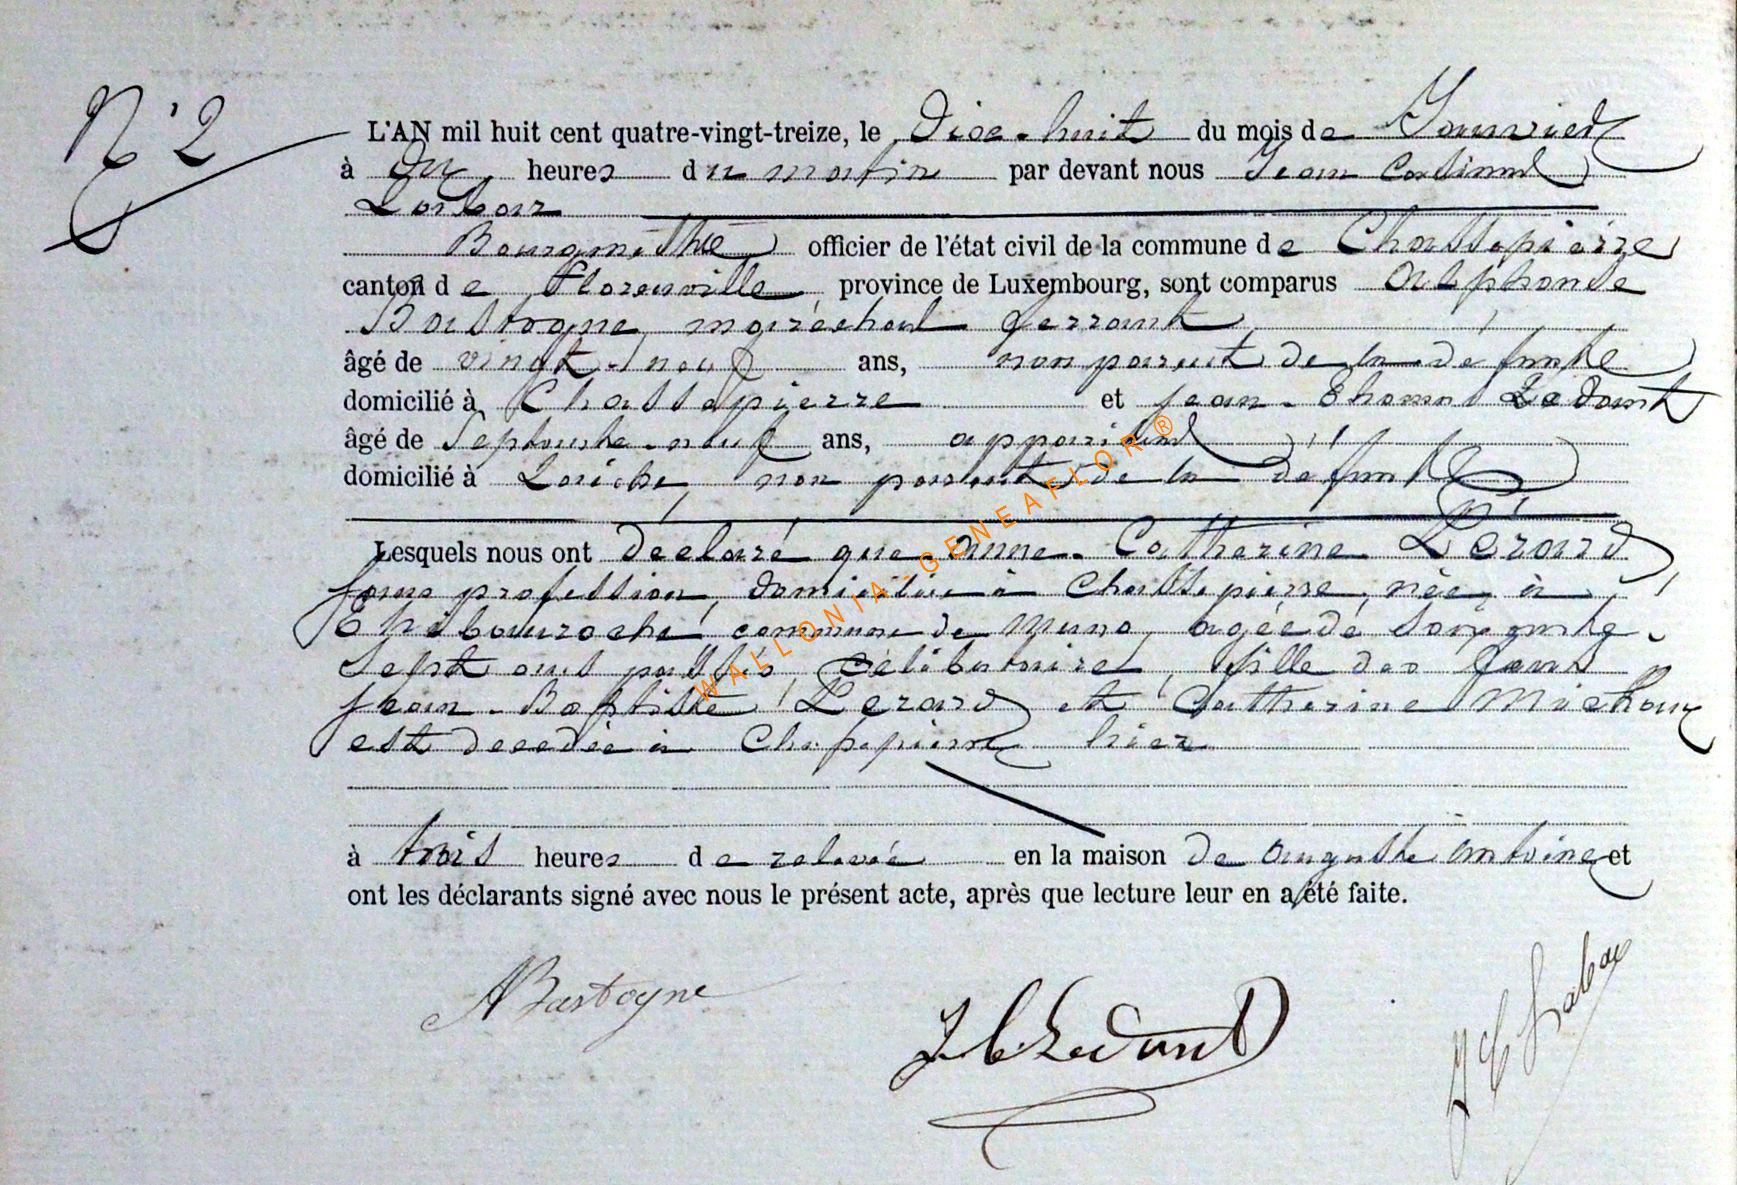 N° 2
L'AN mil huit cent quatre-vingt-treize, le Dix-huit du mois de Janvier
à Dix heures du matin par devant nous Jean
Bourgmestre officier de l'état civil de la commune de Chassepierre
canton de Florenville province de Luxembourg, sont comparus Alphonse
Bastogne, maréchal ferrant
âgé de vingt-neuf ans, non parent de la défunte
domicilié à Chassepierre et Jean-Thomas Ledant
âgé de Septante-neuf ans,
domicilié à Laiche, non parent de la défunte
Lesquels nous ont déclaré que Anne-Catherine Lérard
sans profession, domiciliée à Chassepierre, née à
commune de Muno, agée de soixante-
sept ans passés, célibataire, fille des feus
Jean-Baptiste Lerard et Catherine
est decedée à Chassepierre hier
à trois heures de relevée en la maison de Auguste Antoine et
ont les déclarants signé avec nous le présent acte, après que lecture leur en a été faite.
ABastogne
Ledant
WALLONIA-GENEAFLOR®